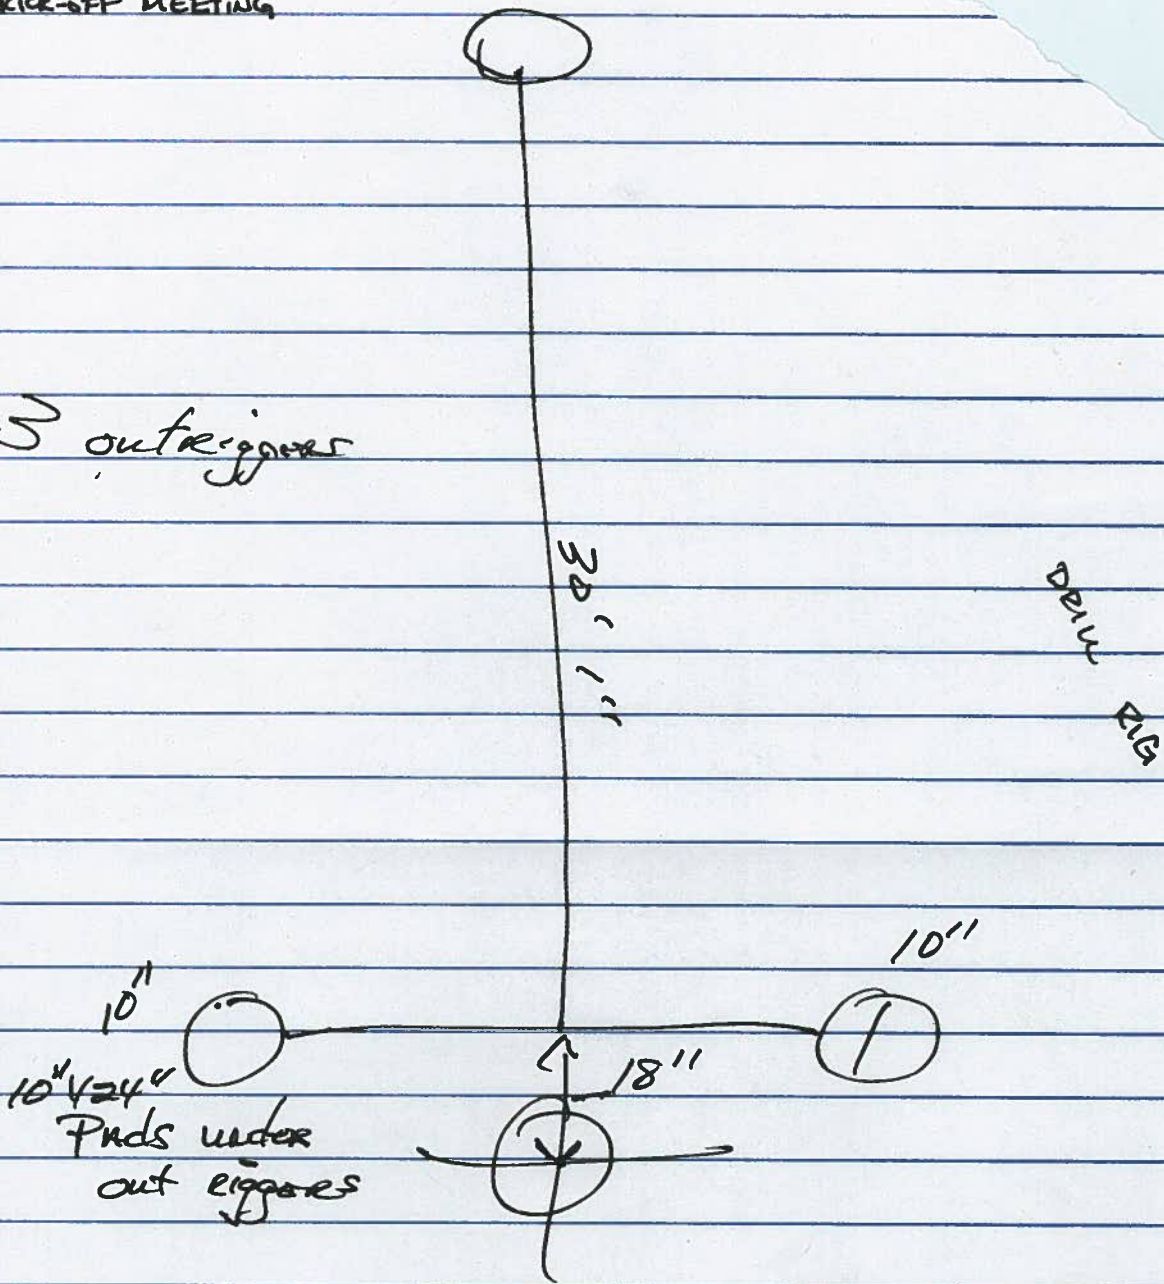 KICK-OFF MEETING
3 outriggers
30' 1"
DRILL
RIG
10"
10"
18"
10"x24"
Pads under
out riggers